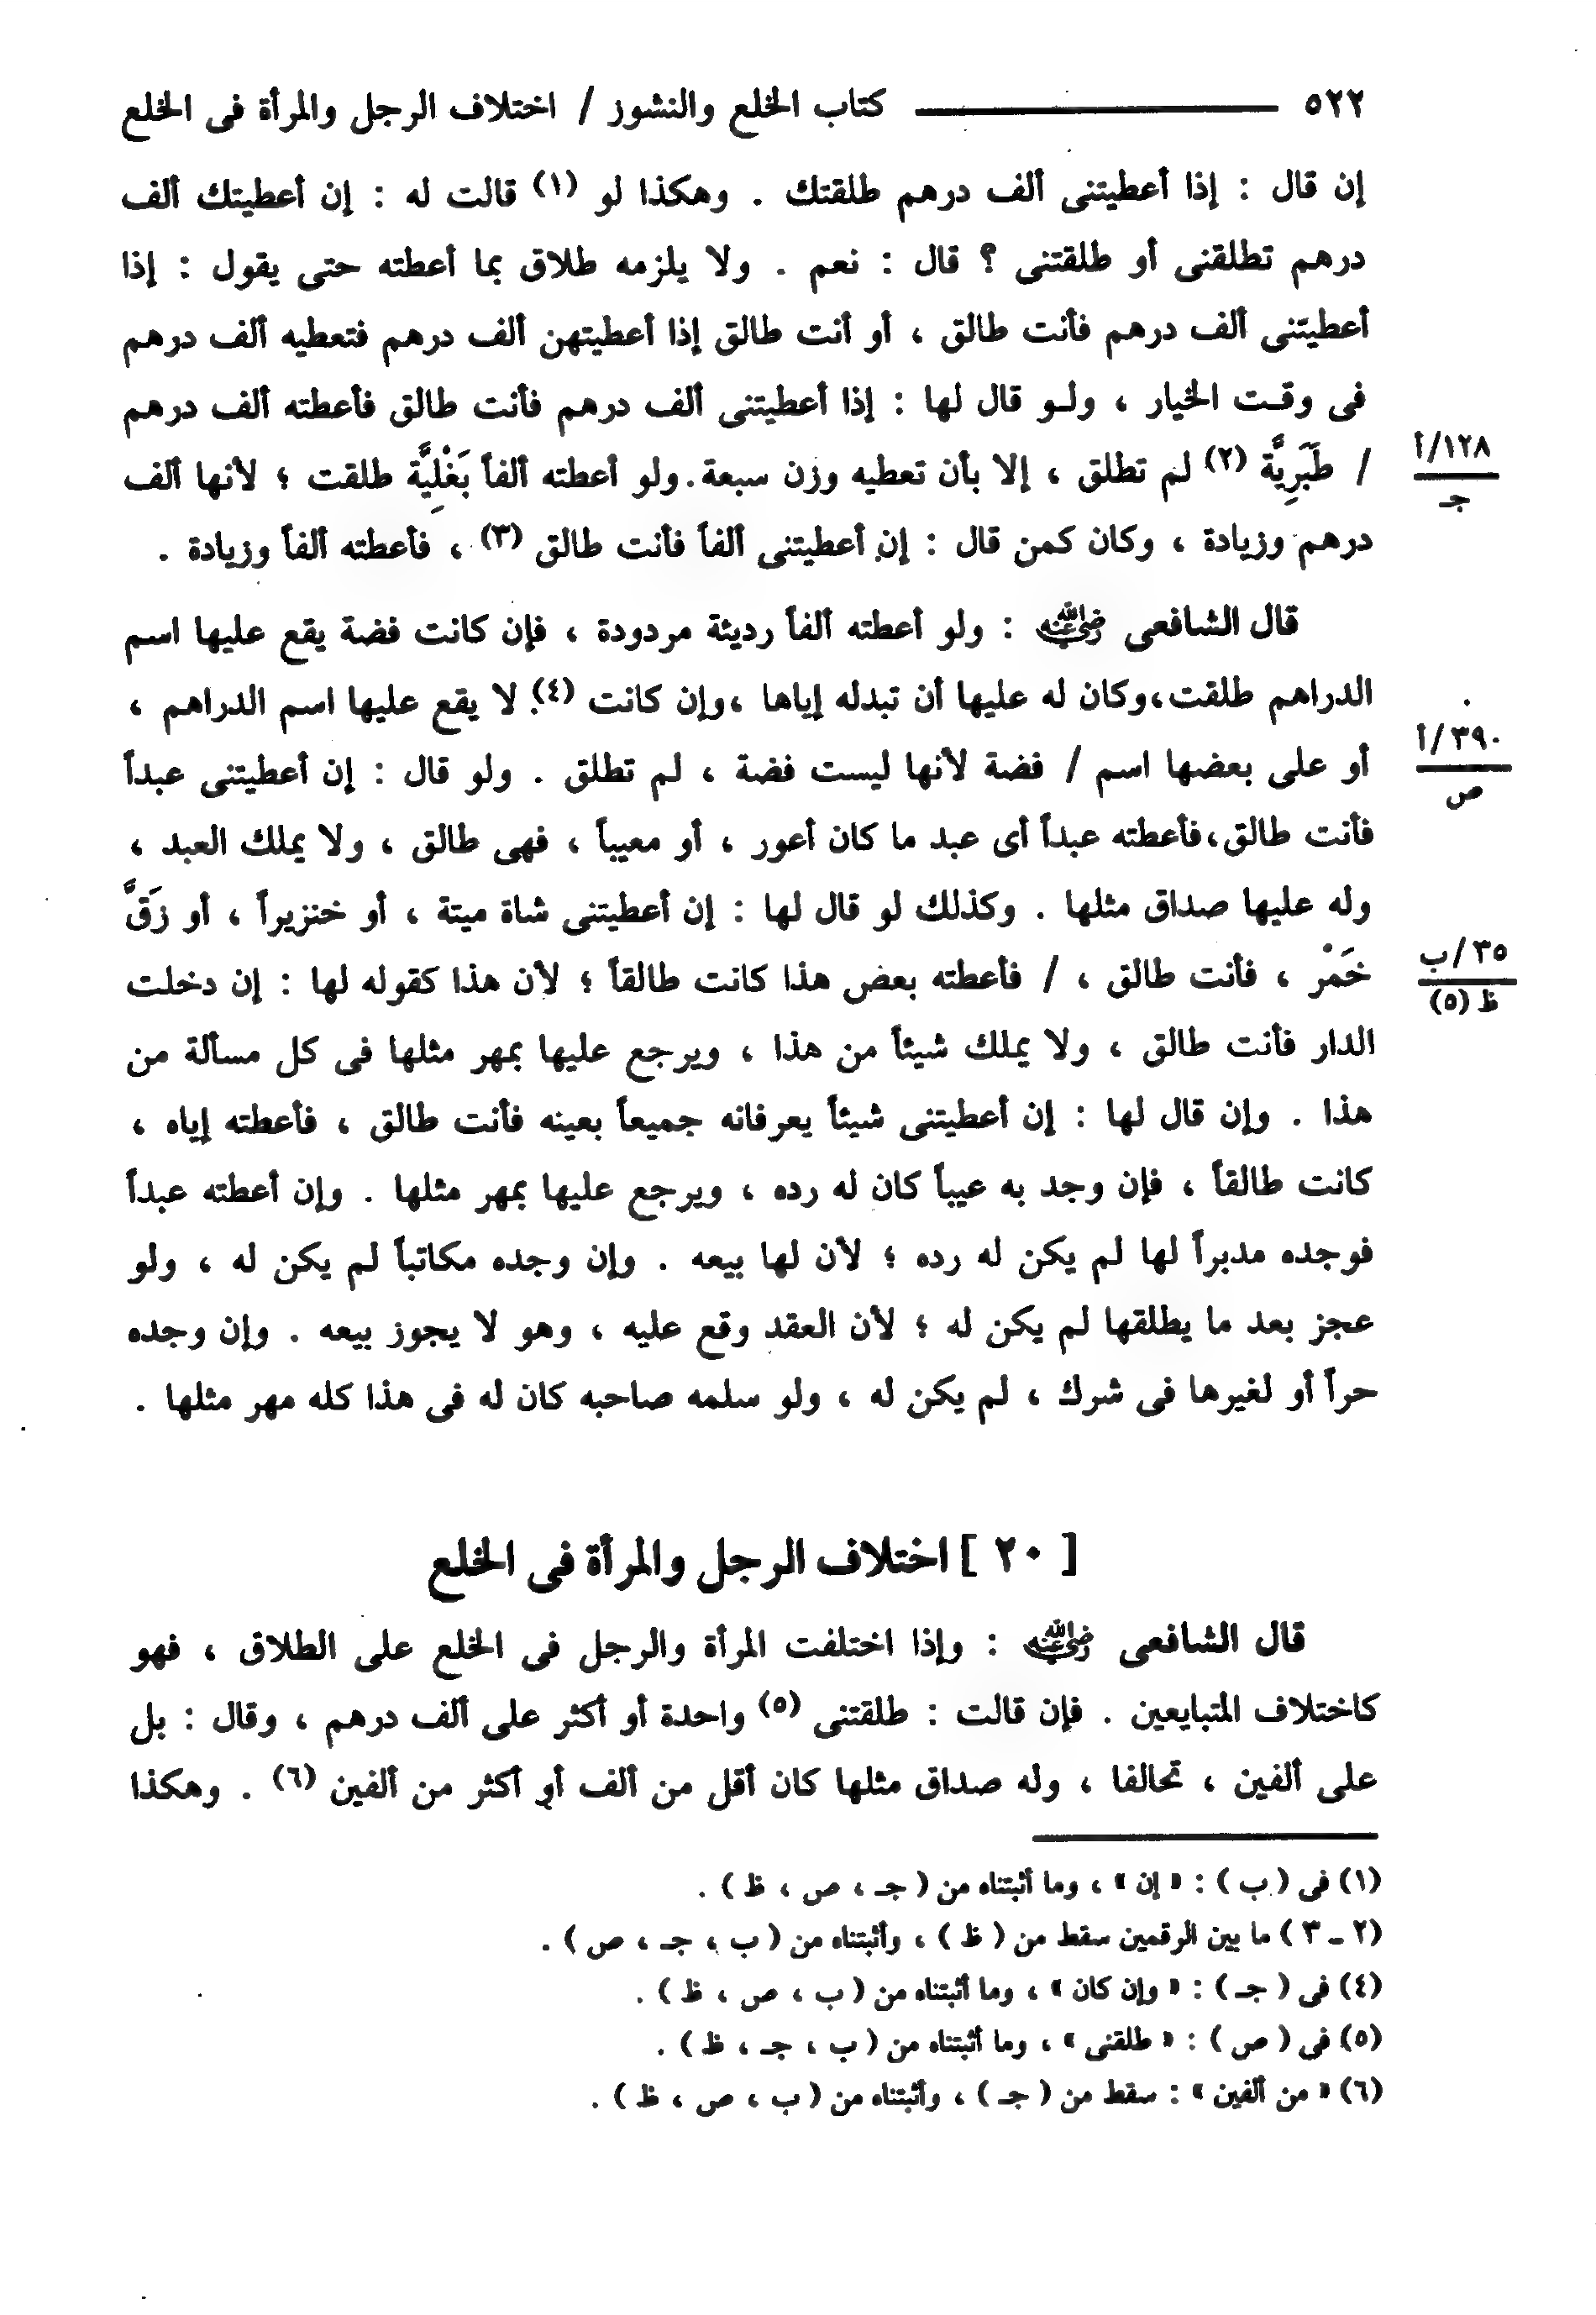 ٥٢٢ ــــــــــــــــــــ كتاب الخلع والنشوز / اختلاف الرجل والمرأة فى الخلع
إن قال : إذا أعطيتنى ألف درهم طلقتك . وهكذا لو (١) قالت له : إن أعطيتك ألف
درهم تطلقنى أو طلقتنى ؟ قال : نعم . ولا يلزمه طلاق بما أعطته حتى يقول : إذا
أعطيتنى ألف درهم فأنت طالق ، أو أنت طالق إذا أعطيتهن ألف درهم فتعطيه ألف درهم
فى وقـت الخيار ، ولـو قال لها : إذا أعطيتنى ألف درهم فأنت طالق فأعطته ألف درهم
١٢٨/أ
جـ
/ طَبَرِيَّة (٢) لم تطلق ، إلا بأن تعطيه وزن سبعة.ولو أعطته ألفاً بَغْلِيَّة طلقت ؛ لأنها ألف
درهم وزيادة ، وكان كمن قال : إن أعطيتنى ألفاً فأنت طالق (٣) ، فأعطته ألفاً وزيادة .
قال الشافعى رضي الله عنه : ولو أعطته ألفاً رديئة مردودة ، فإن كانت فضة يقع عليها اسم
الدراهم طلقت،وكان له عليها أن تبدله إياها ،وإن كانت (٤) لا يقع عليها اسم الدراهم ،
٣٩٠/أ
ص
أو على بعضها اسم / فضة لأنها ليست فضة ، لم تطلق . ولو قال : إن أعطيتنى عبداً
فأنت طالق،فأعطته عبداً أى عبد ما كان أعور ، أو معيباً ، فهى طالق ، ولا يملك العبد ،
وله عليها صداق مثلها . وكذلك لو قال لها : إن أعطيتنى شاة ميتة ، أو خنزيراً ، أو زَقَّ
٣٥/ب
ظ (٥)
خَمْر ، فأنت طالق ، / فأعطته بعض هذا كانت طالقاً ؛ لأن هذا كقوله لها : إن دخلت
الدار فأنت طالق ، ولا يملك شيئاً من هذا ، ويرجع عليها بمهر مثلها فى كل مسألة من
هذا . وإن قال لها : إن أعطيتنى شيئاً يعرفانه جميعاً بعينه فأنت طالق ، فأعطته إياه ،
كانت طالقاً ، فإن وجد به عيباً كان له رده ، ويرجع عليها بمهر مثلها . وإن أعطته عبداً
فوجده مدبراً لها لم يكن له رده ؛ لأن لها بيعه . وإن وجده مكاتباً لم يكن له ، ولو
عجز بعد ما يطلقها لم يكن له ؛ لأن العقد وقع عليه ، وهو لا يجوز بيعه . وإن وجده
حراً أو لغيرها فى شرك ، لم يكن له ، ولو سلمه صاحبه كان له فى هذا كله مهر مثلها .
[ ٢٠ ] اختلاف الرجل والمرأة فى الخلع
قال الشافعى رضي الله عنه : وإذا اختلفت المرأة والرجل فى الخلع على الطلاق ، فهو
كاختلاف المتبايعين . فإن قالت : طلقتنى (٥) واحدة أو أكثر على ألف درهم ، وقال : بل
على ألفين ، تحالفا ، وله صداق مثلها كان أقل من ألف أو أكثر من ألفين (٦) . وهكذا
(١) فى ( ب ) : « إن » ، وما أثبتناه من ( جـ ، ص ، ظ ) .
(٢ ـ ٣ ) ما بين الرقمين سقط من ( ظ ) ، وأثبتناه من ( ب ، جـ ، ص ) .
(٤) فى ( جـ ) : « وإن كان » ، وما أثبتناه من ( ب ، ص ، ظ ) .
(٥) فى ( ص ) : « طلقنى » ، وما أثبتناه من ( ب ، جـ ، ظ ) .
(٦) « من ألفين » : سقط من ( جـ ) ، وأثبتناه من ( ب ، ص ، ظ ) .